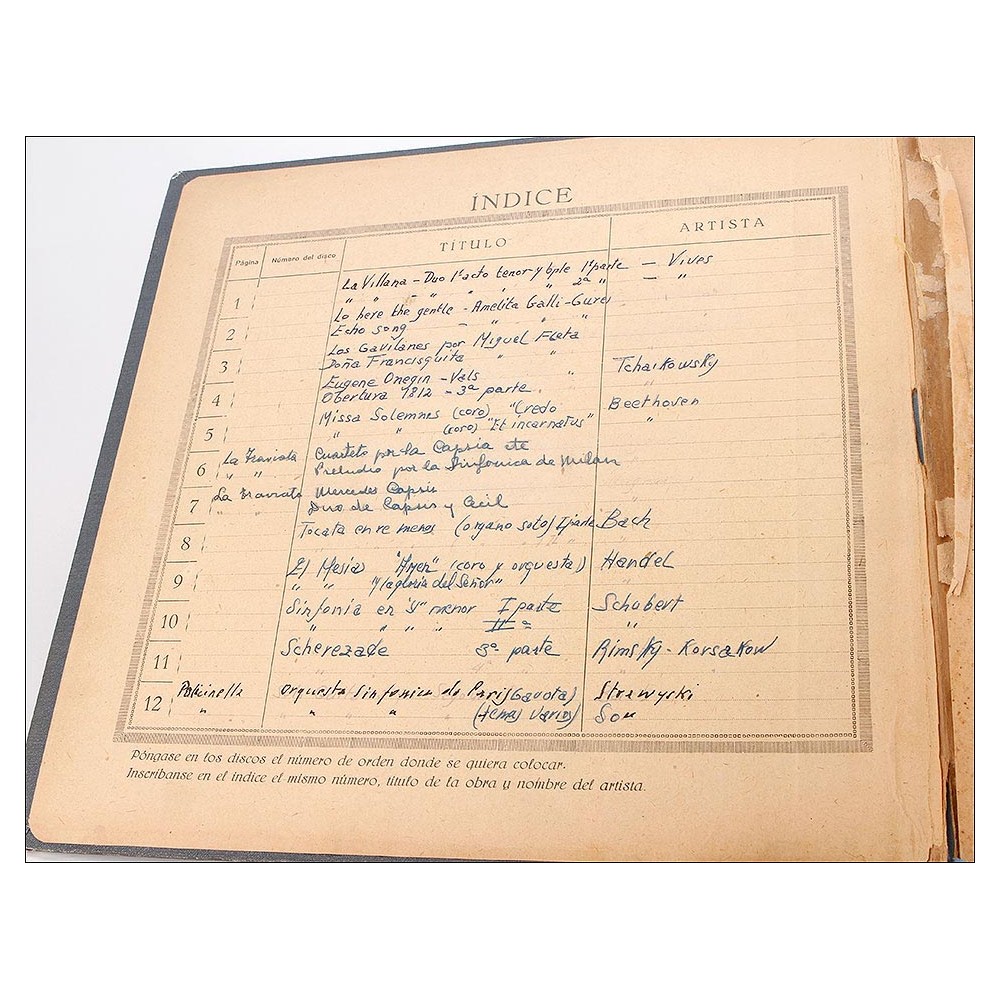 ÍNDICE
Página Número del disco TÍTULO ARTISTA
1 La Villana - Duo 1º acto tenor y tiple 1ª parte - Vives
" " - " " " " 2ª " - "
2 Lo here the gentle - Amelita Galli-Gurci
Echo song - " " "
3 Los Gavilanes por Miguel Fleta
Doña Francisquita " " "
4 Eugene Onegin - Vals Tchaikowsky
Obertura 1812 - 3ª parte "
5 Missa Solemnes (coro) "Credo Beethoven
" " (coro) "Et incarnatus" "
6 La Traviata Cuarteto por la Capsia etc
" " Preludio por la Sinfonica de Milán
7 La Traviata Mercedes Capsir
" " Duo de Capsir y Cecil
8 Tocata en re menos (organo solo) I parte Bach
9 El Mesías "Amen" (coro y orquesta) Handel
" " "Y la gloria del Señor" "
10 Sinfonia en "Si" menor I parte Schubert
" " " " II ª "
11 Scherezade 3ª parte Rimsky-Korsakow
12 Policinella Orquesta Sinfonica de Paris (Gavota) Strawyski
" " " " (tema varios) Son
Póngase en los discos el número de orden donde se quiera colocar.
Inscríbanse en el índice el mismo número, título de la obra y nombre del artista.